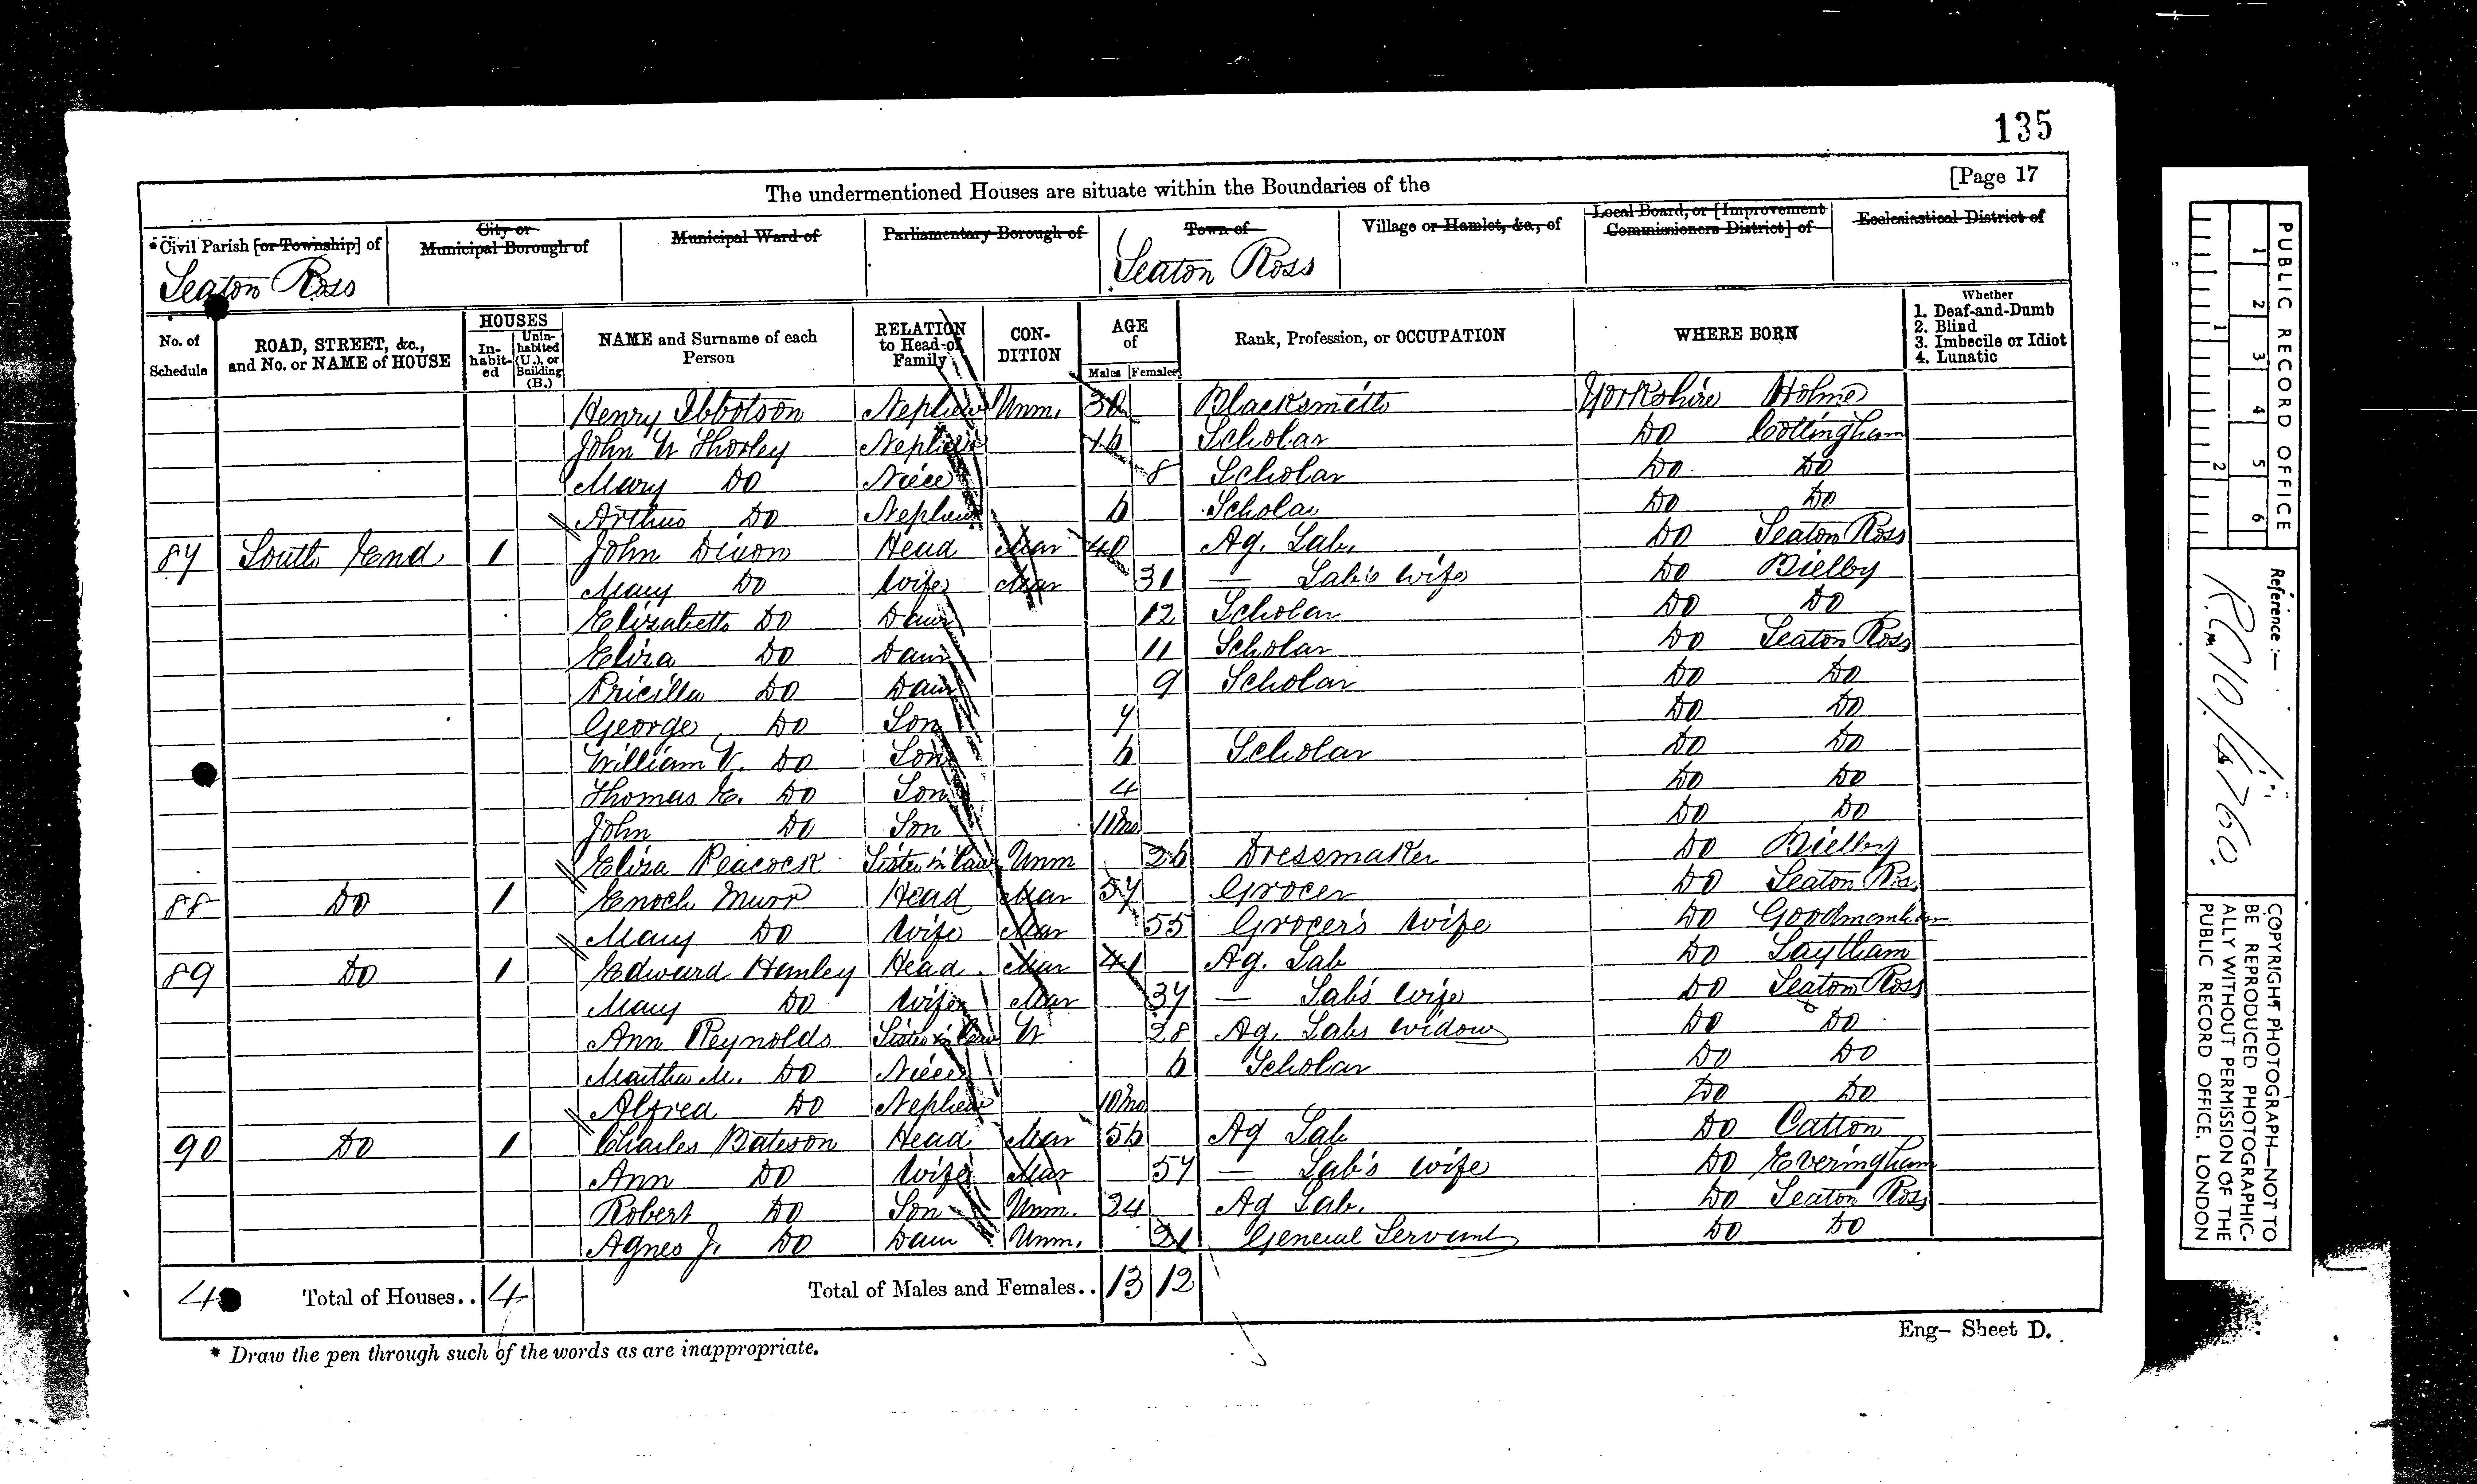 135
The undermentioned Houses are situate within the Boundaries of the
[Page 17
* Civil Parish [or Township] of
City or Municipal Borough of
Municipal Ward of
Parliamentary Borough of
Town of
Village or Hamlet, &c., of
Local Board, or [Improvement Commissioners District] of
Ecclesiastical District of
Seaton Ross
Seaton Ross
No. of Schedule
ROAD, STREET, &c., and No. or NAME of HOUSE
HOUSES
In-habit-ed
Unin-habited (U.), or Building (B.)
NAME and Surname of each Person
RELATION to Head of Family
CON-DITION
AGE of
Males Females
Rank, Profession, or OCCUPATION
WHERE BORN
Whether
1. Deaf-and-Dumb
2. Blind
3. Imbecile or Idiot
4. Lunatic
Henry Ibbotson Nephew Unm. 30 Blacksmith Yorkshire Holme
John W Thorley Nephew Scholar Do Cottingham
Mary Do Niece 8 Scholar Do Do
Arthur Do Nephew 6 Scholar Do Do
87 South End 1 John Dixon Head Mar 40 Ag. Lab. Do Seaton Ross
Mary Do Wife Mar 31 — Lab's Wife Do Bielby
Elizabeth Do Daur 12 Scholar Do Do
Eliza Do Daur 11 Scholar Do Seaton Ross
Pricilla Do Daur 9 Scholar Do Do
George Do Son 7 Do Do
William V. Do Son 6 Scholar Do Do
Thomas E. Do Son 4 Do Do
John Do Son 11Mo Do Do
Eliza Peacock Sister in Law Unm 26 Dressmaker Do Bielby
88 Do 1 Enoch Head Mar 57 Grocer Do Seaton Ros
Mary Do Wife Mar 55 Grocer's Wife Do Goodmanham
89 Do 1 Edward Hanley Head Mar 41 Ag. Lab Do Laytham
Mary Do Wife Mar 37 — Lab's Wife Do Seaton Ross
Ann Reynolds Sister in Law W 28 Ag. Labs widow Do Do
Martha M. Do Niece 6 Scholar Do Do
Alfred Do Nephew 10Mo Do Do
90 Do 1 Charles Bateson Head Mar 56 Ag Lab Do Catton
Ann Do Wife Mar 57 — Lab's Wife Do Everingham
Robert Do Son Unm. 24 Ag Lab. Do Seaton Ross
Agnes J. Do Daur Unm. 21 General Servant Do Do
4 Total of Houses.. 4 Total of Males and Females.. 13 12
Eng— Sheet D.
* Draw the pen through such of the words as are inappropriate.
PUBLIC RECORD OFFICE
1 2 3 4 5 6
1 2
Reference :—
R.G. 10/4760.
COPYRIGHT PHOTOGRAPH—NOT TO
BE REPRODUCED PHOTOGRAPHIC-
ALLY WITHOUT PERMISSION OF THE
PUBLIC RECORD OFFICE, LONDON